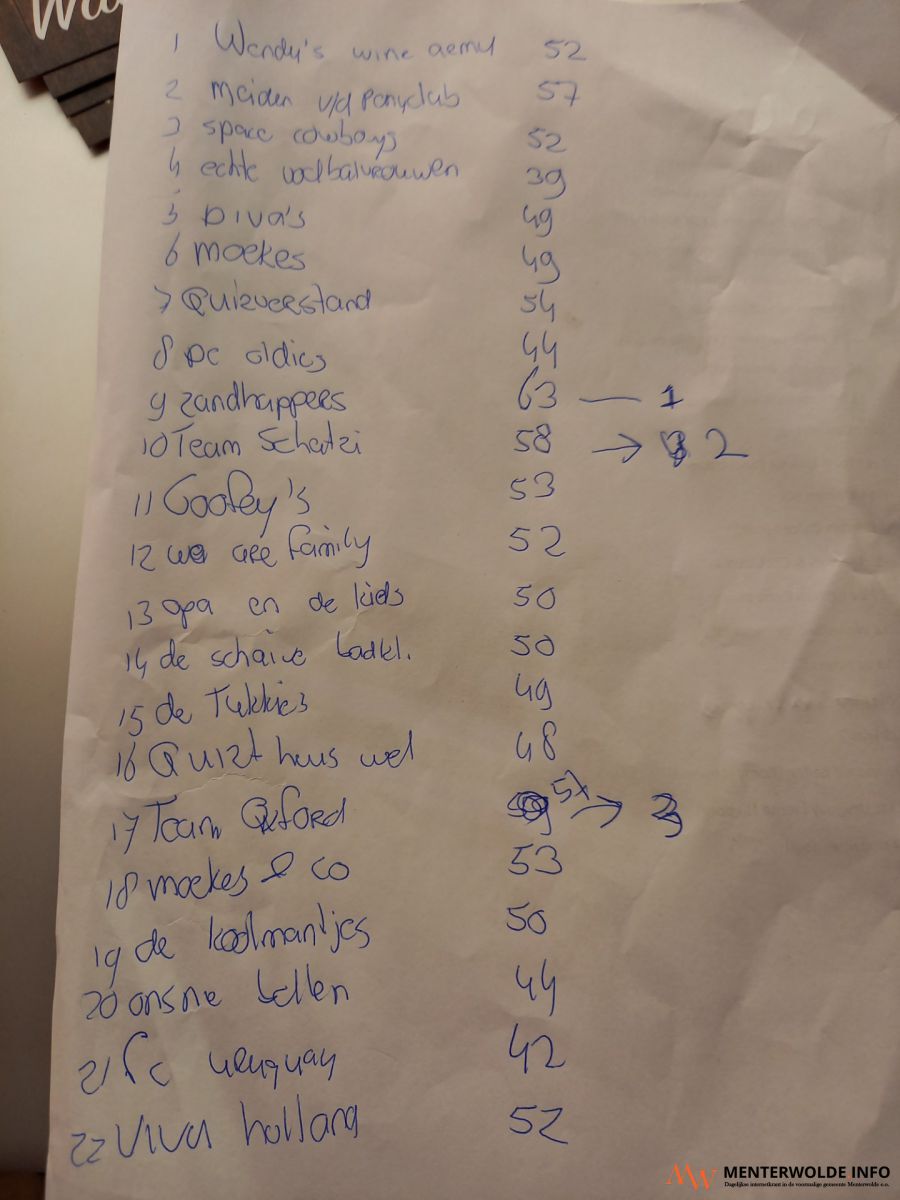 Wa
1 Wendy's wine aemy 52
2 meiden v/d Ponyclub 57
3 space cowboys 52
4 echte voetbalvrouwen 39
5 DIVA's 49
6 moekes 49
7 Quizverstand 54
8 DC oldies 44
9 zandhappers 63 — 1
10 Team Schatzi 58 → 2
11 Goofey's 53
12 we are family 52
13 opa en de kids 50
14 de schaive 50
15 de Tukkies 49
16 Quizt huus wel 48
17 Team Oxford → 3
18 moekes & co 53
19 de koolmantjes 50
20 onsne bellen 44
21 fc uruguay 42
22 VIVA holland 52
MW MENTERWOLDE INFO
Dagelijkse internetkrant in de voormalige gemeente Menterwolde e.o.